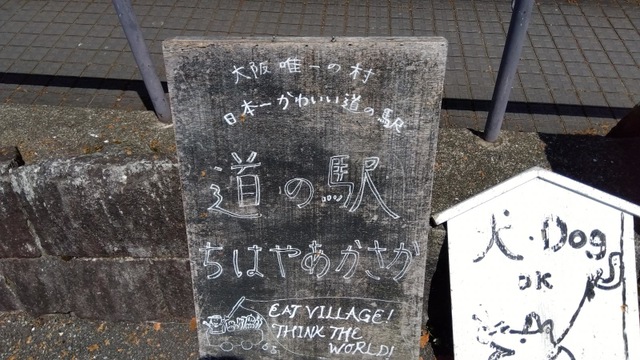 大阪唯一の村
日本一かわいい道の駅
道の駅
ちはやあかさか
EAT VILLAGE!
THINK THE
WORLD!
犬・Dog
OK